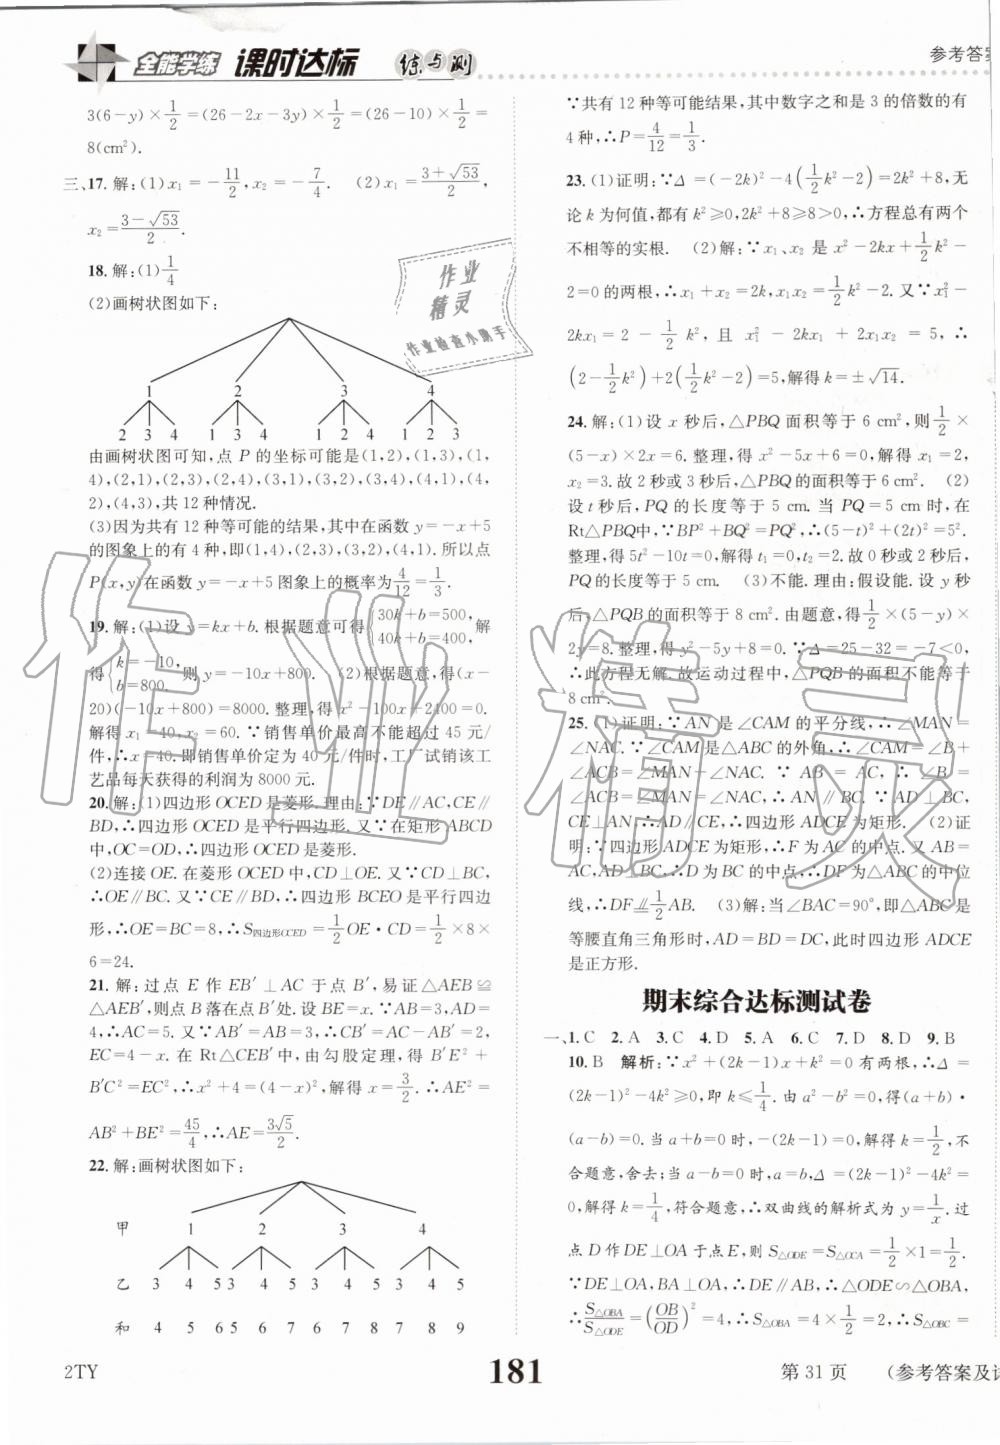 全能学练 课时达标 练与测
参考答案
3(6-y)×1/2=(26-2x-3y)×1/2=(26-10)×1/2=
8(cm²).
三、17. 解:(1)x₁=-11/2,x₂=-7/4. (2)x₁=(3+√53)/2,
x₂=(3-√53)/2.
18. 解:(1)1/4
(2)画树状图如下:
1 2 3 4
2 3 4 1 3 4 1 2 4 1 2 3
由画树状图可知,点 P 的坐标可能是(1,2),(1,3),(1,
4),(2,1),(2,3),(2,4),(3,1),(3,2),(3,4),(4,1),(4,
2),(4,3),共12种情况.
(3)因为共有12种等可能的结果,其中在函数 y=-x+5
的图象上的有4种,即(1,4),(2,3),(3,2),(4,1).所以点
P(x,y)在函数 y=-x+5图象上的概率为4/12=1/3.
19. 解:(1)设 y=kx+b.根据题意可得{30k+b=500, 40k+b=400, 解
得{k=-10, b=800. 则 y=-10x+800. (2)根据题意,得(x-
20)(-10x+800)=8000. 整理,得 x²-100x+2400=0.
解得 x₁=40,x₂=60. ∵销售单价最高不能超过45元/
件,∴x=40.即销售单价定为40元/件时,工厂试销该工
艺品每天获得的利润为8000元.
20. 解:(1)四边形 OCED 是菱形.理由:∵DE∥AC,CE∥
BD,∴四边形 OCED 是平行四边形.又∵在矩形 ABCD
中,OC=OD,∴四边形 OCED 是菱形.
(2)连接 OE.在菱形 OCED 中,CD⊥OE.又∵CD⊥BC,
∴OE∥BC.又∵CE∥BD,∴四边形 BCEO 是平行四边
形,∴OE=BC=8,∴S四边形OCED=1/2OE·CD=1/2×8×
6=24.
21. 解:过点 E 作 EB′⊥AC 于点 B′,易证△AEB≌
△AEB′,则点 B 落在点 B′处.设 BE=x.∵AB=3,AD=
4,∴AC=5.又∵AB′=AB=3,∴CB′=AC-AB′=2,
EC=4-x.在 Rt△CEB′中,由勾股定理,得 B′E²+
B′C²=EC²,∴x²+4=(4-x)²,解得 x=3/2.∴AE²=
AB²+BE²=45/4,∴AE=3√5/2.
22. 解:画树状图如下:
甲 1 2 3 4
乙 3 4 5 3 4 5 3 4 5 3 4 5
和 4 5 6 5 6 7 6 7 8 7 8 9
∵共有12种等可能结果,其中数字之和是3的倍数的有
4种,∴P=4/12=1/3.
23. (1)证明:∵Δ=(-2k)²-4(1/2k²-2)=2k²+8,无
论 k 为何值,都有 k²≥0,2k²+8≥8>0,∴方程总有两个
不相等的实根. (2)解:∵x₁、x₂ 是 x²-2kx+1/2k²-
2=0的两根,∴x₁+x₂=2k,x₁x₂=1/2k²-2.又∵x₁²-
2kx₁=2-1/2k²,且 x₁²-2kx₁+2x₁x₂=5,∴
(2-1/2k²)+2(1/2k²-2)=5,解得 k=±√14.
24. 解:(1)设 x 秒后,△PBQ 面积等于6 cm²,则1/2×
(5-x)×2x=6.整理,得 x²-5x+6=0.解得 x₁=2,
x₂=3.故2秒或3秒后,△PBQ 的面积等于6 cm². (2)
设 t 秒后,PQ 的长度等于5 cm.当 PQ=5 cm 时,在
Rt△PBQ中,∵BP²+BQ²=PQ²,∴(5-t)²+(2t)²=5².
整理,得5t²-10t=0,解得 t₁=0,t₂=2.故0秒或2秒后,
PQ 的长度等于5 cm. (3)不能.理由:假设能.设 y 秒
后,△PQB 的面积等于8 cm².由题意,得1/2×(5-y)×
2y=8.整理,得 y²-5y+8=0.∵Δ=25-32=-7<0,
∴此方程无解.故运动过程中,△PQB 的面积不能等于
8 cm².
25. (1)证明:∵AN 是∠CAM 的平分线,∴∠MAN=
∠NAC.∵∠CAM 是△ABC 的外角,∴∠CAM=∠B+
∠ACB=∠MAN+∠NAC.∵AB=AC,∴∠B=
∠ACB=∠MAN=∠NAC,∴AN∥BC.又∵AD⊥BC,
CE⊥AN,∴AD∥CE,∴四边形 ADCE 为矩形. (2)证
明:∵四边形 ADCE 为矩形,∴F 为 AC 的中点.又∵AB=
AC,AD⊥BC,∴D 为 BC 的中点,∴DF 为△ABC 的中位
线,∴DF∥=1/2AB. (3)解:当∠BAC=90°,即△ABC 是
等腰直角三角形时,AD=BD=DC,此时四边形 ADCE
是正方形.
期末综合达标测试卷
一、1. C 2. A 3. C 4. D 5. A 6. C 7. D 8. D 9. B
10. B 解析:∵x²+(2k-1)x+k²=0有两根,∴Δ=
(2k-1)²-4k²≥0,即 k≤1/4.由 a²-b²=0,得(a+b)·
(a-b)=0.当 a+b=0时,-(2k-1)=0,解得 k=1/2,不
合题意,舍去;当 a-b=0时,a=b,Δ=(2k-1)²-4k²=
0,解得 k=1/4,符合题意,∴双曲线的解析式为 y=1/x.过
点 D 作 DE⊥OA 于点 E,则 S△ODE=S△OCA=1/2×1=1/2.
∵DE⊥OA,BA⊥OA,∴DE∥AB,∴△ODE∽△OBA,
∴S△OBA/S△ODE=(OB/OD)²=4,∴S△OBA=4×1/2=2,∴S△OBC=
2TY
181
第31页
(参考答案及
作业精灵
作业检查小助手
作业精灵